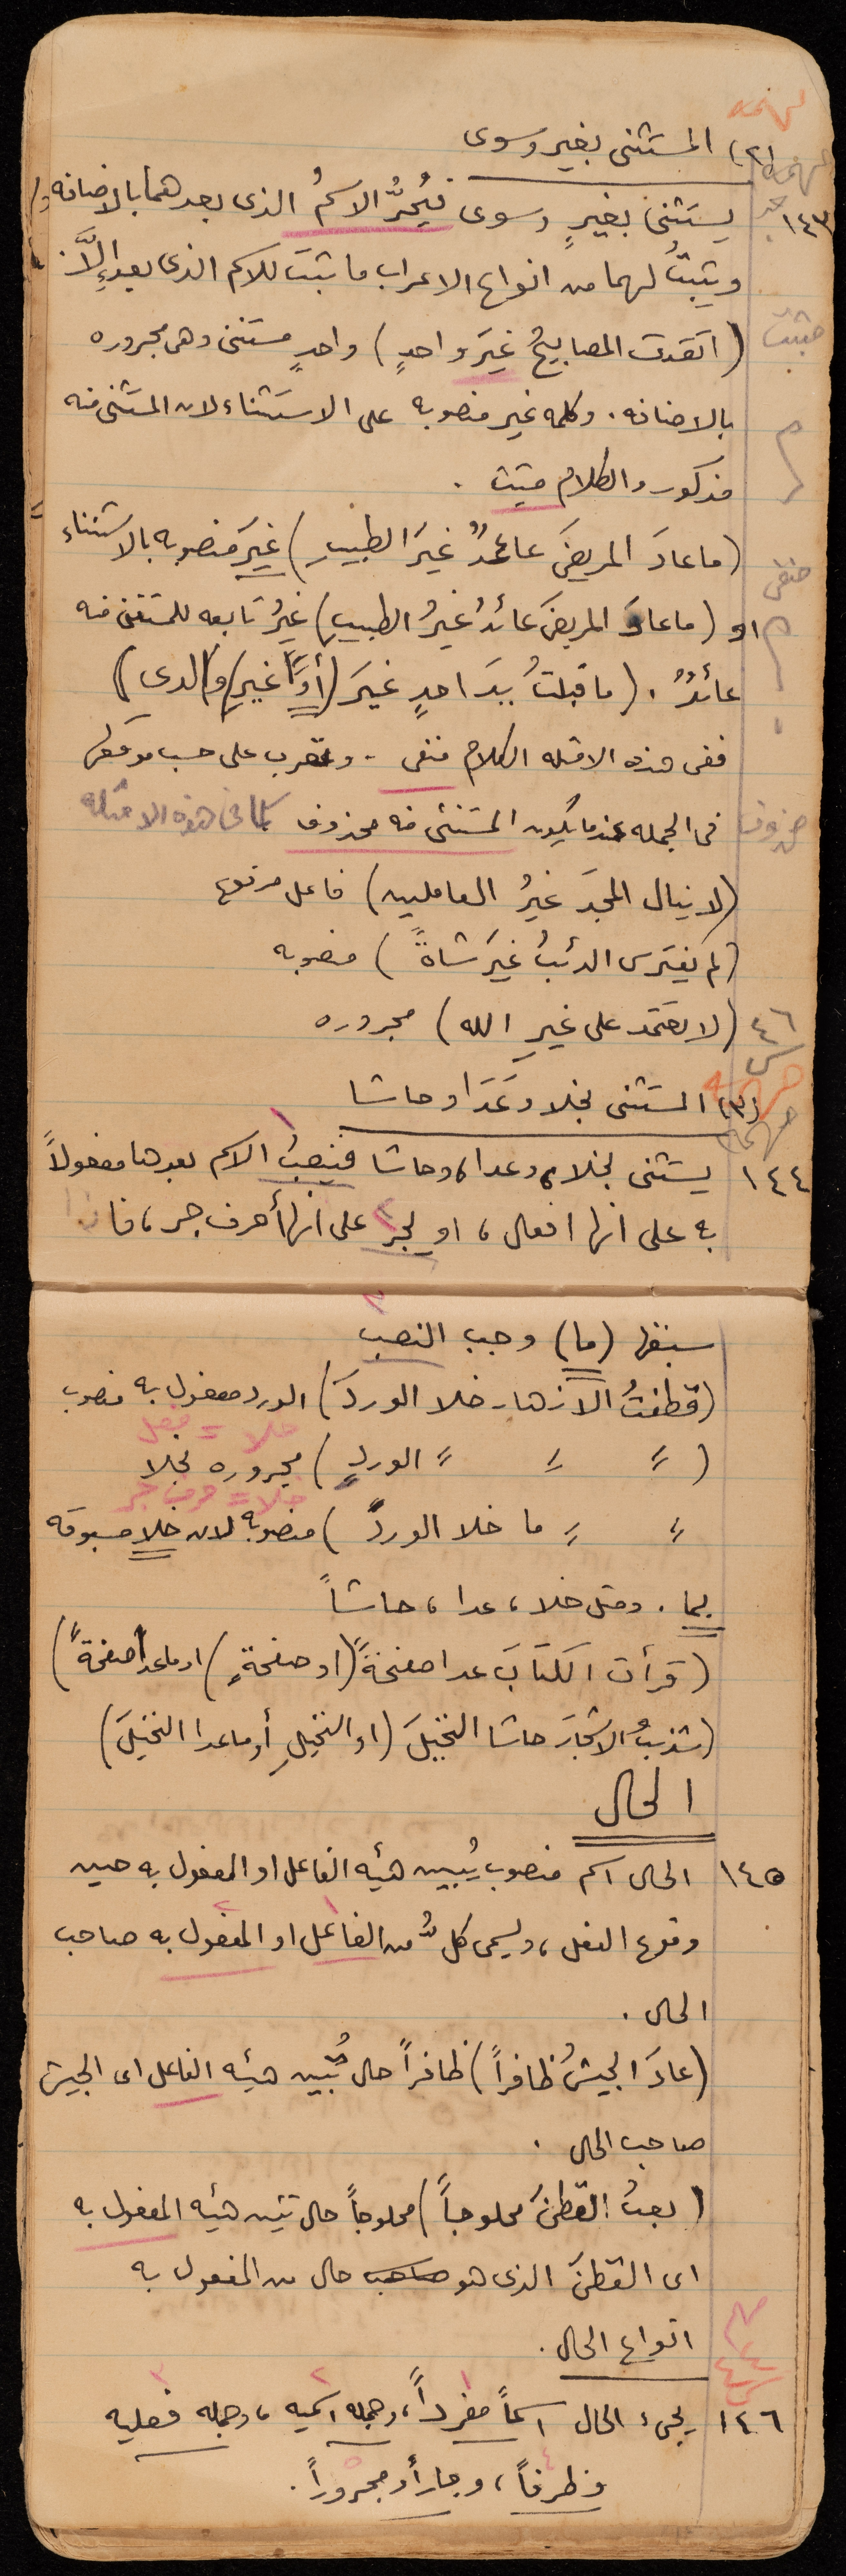 (٢) المستثنى بغير وسوى
١٤٣ يستثنى بغيرٍ وسوى فيُجرُّ الاسمُ الذى بعدهما بالاضافه
ويثبتُ لهما من انواع الاعراب ما ثبتَ للاسم الذى بعد إلَّا
(اتقدت المصابيحُ غيرَ واحدٍ) واحدٍ مستثنى وهى مجروره
بالاضافه. وكلمه غير منصوبه على الاستثناء لان المستثنى منه
مذكور والكلام مثبت.
(ما عادَ المريضَ عائدٌ غيرَ الطبيبِ) غيرَ منصوبه بالاستثناء
منفى
او (ما عادَ المريضَ عائدٌ غيرُ الطبيبِ) غيرُ تابعه للمستثنى منه
عائدٌ. (ما قبلتُ يدَ احدٍ غيرَ (أو غيرِ) والدى)
ففى هذه الامثله الكلام منفى - وتعرب على حسب موقعها
فى الجمله عندما يكون المستثنى منه محذوف كما فى هذه الامثله
محذوف
(لا ينال المجدَ غيرُ العاملين) فاعل مرفوع
(لم يفترس الذئبُ غيرَ شاةً) منصوبه
(لا تعتمد على غيرِ الله) مجروره
(٣) المستثنى بخلا وعَدَا وحاشا
١٤٤ يستثنى بخلا، وعدا، وحاشا فينصبُ الاسم بعدها مفعولاً
به على انها افعال، او يجر على انها أحرف جر، فاذا
سبقها (ما) وجب النصب
(قطفتُ الازهار خلا الوردَ) الورد مفعول به منصوب
خلا = فعل
( " " " الوردِ) مجروره بخلا
خلا = حرف جر
" " ما خلا الوردَ) منصوبه لان خلا مسبوقه
بما. ومثل خلا، عدا، حاشاً
(قرأت الكتابَ عدا صفحةً (او صفحةٍ) او ماعدا صفحةً)
(شذبتُ الاشجارَ حاشا النخيلَ (او النخيلِ أو ماعدا النخيلَ)
الحال
١٤٥ الحال اسم منصوب يُبين هيئه الفاعل او المفعول به حين
وقوع الفعل، ويسمى كلٌّ من الفاعل او المفعول به صاحب
الحال.
(عادَ الجيشُ ظافراً) ظافراً حال تُبين هيئه الفاعل اى الجيش
صاحب الحال.
(بعتُ القطنَ محلوجاً) محلوجاً حال تبين هيئه المفعول به
اى القطنَ الذى هو صاحب حال من المفعول به
انواع الحال.
١٤٦ يجىء الحال اسماً مفرداً، وجمله اسميه، وجمله فعليه
وظرفاً، وجاراً ومجروراً.